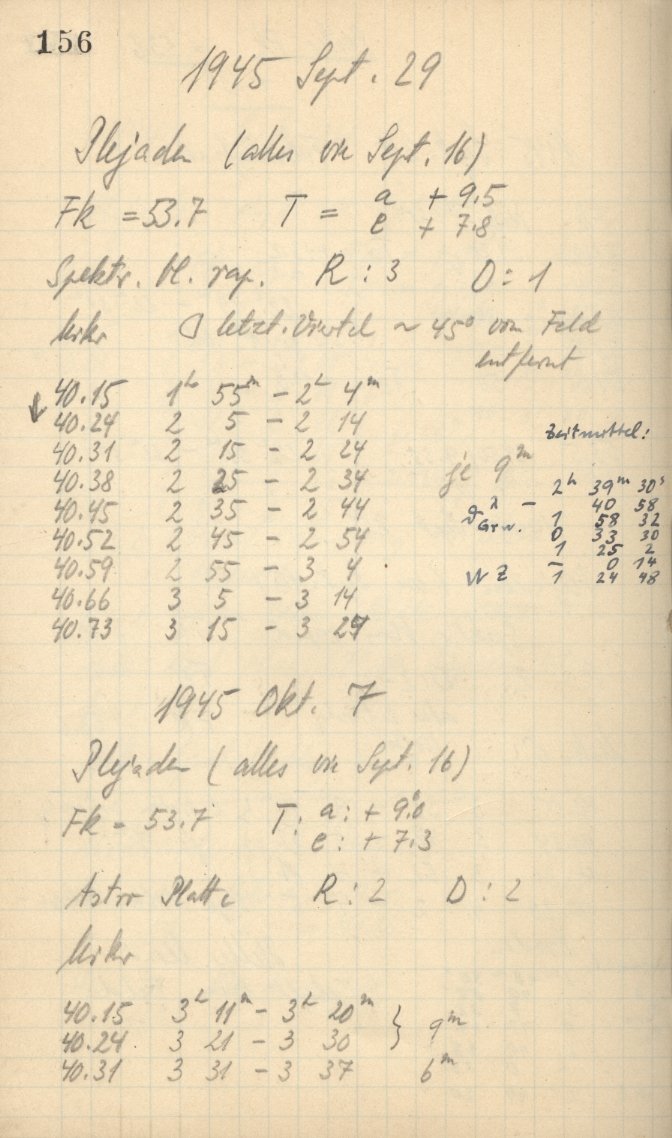 156
1945 Sept. 29
Plejaden (alles wie Sept. 16)
Fk = 53.7 T = a + 9.5
e + 7.8
Spektr. bl. rap. R : 3 D : 1
Mikr
letzt. Viertel ~ 45° vom Feld
entfernt
40.15 1h 55m - 2h 4m
↓ 40.24 2 5 - 2 14
40.31 2 15 - 2 24
40.38 2 25 - 2 34
40.45 2 35 - 2 44
40.52 2 45 - 2 54
40.59 2 55 - 3 4
40.66 3 5 - 3 14
40.73 3 15 - 3 24
je 9m
Zeitmittel:
2h 39m 30s
λ - 40 58
1 58 32
ϑ Grw. 0 33 30
1 25 2
- 0 14
WZ 1 24 48
1945 Okt. 7
Plejaden (alles wie Sept. 16)
Fk = 53.7 T: a: + 9.0
e: + 7.3
Astro Platte R : 2 D : 2
Mikr
40.15 3h 11m - 3h 20m
40.24 3 21 - 3 30 } 9m
40.31 3 31 - 3 37 6m